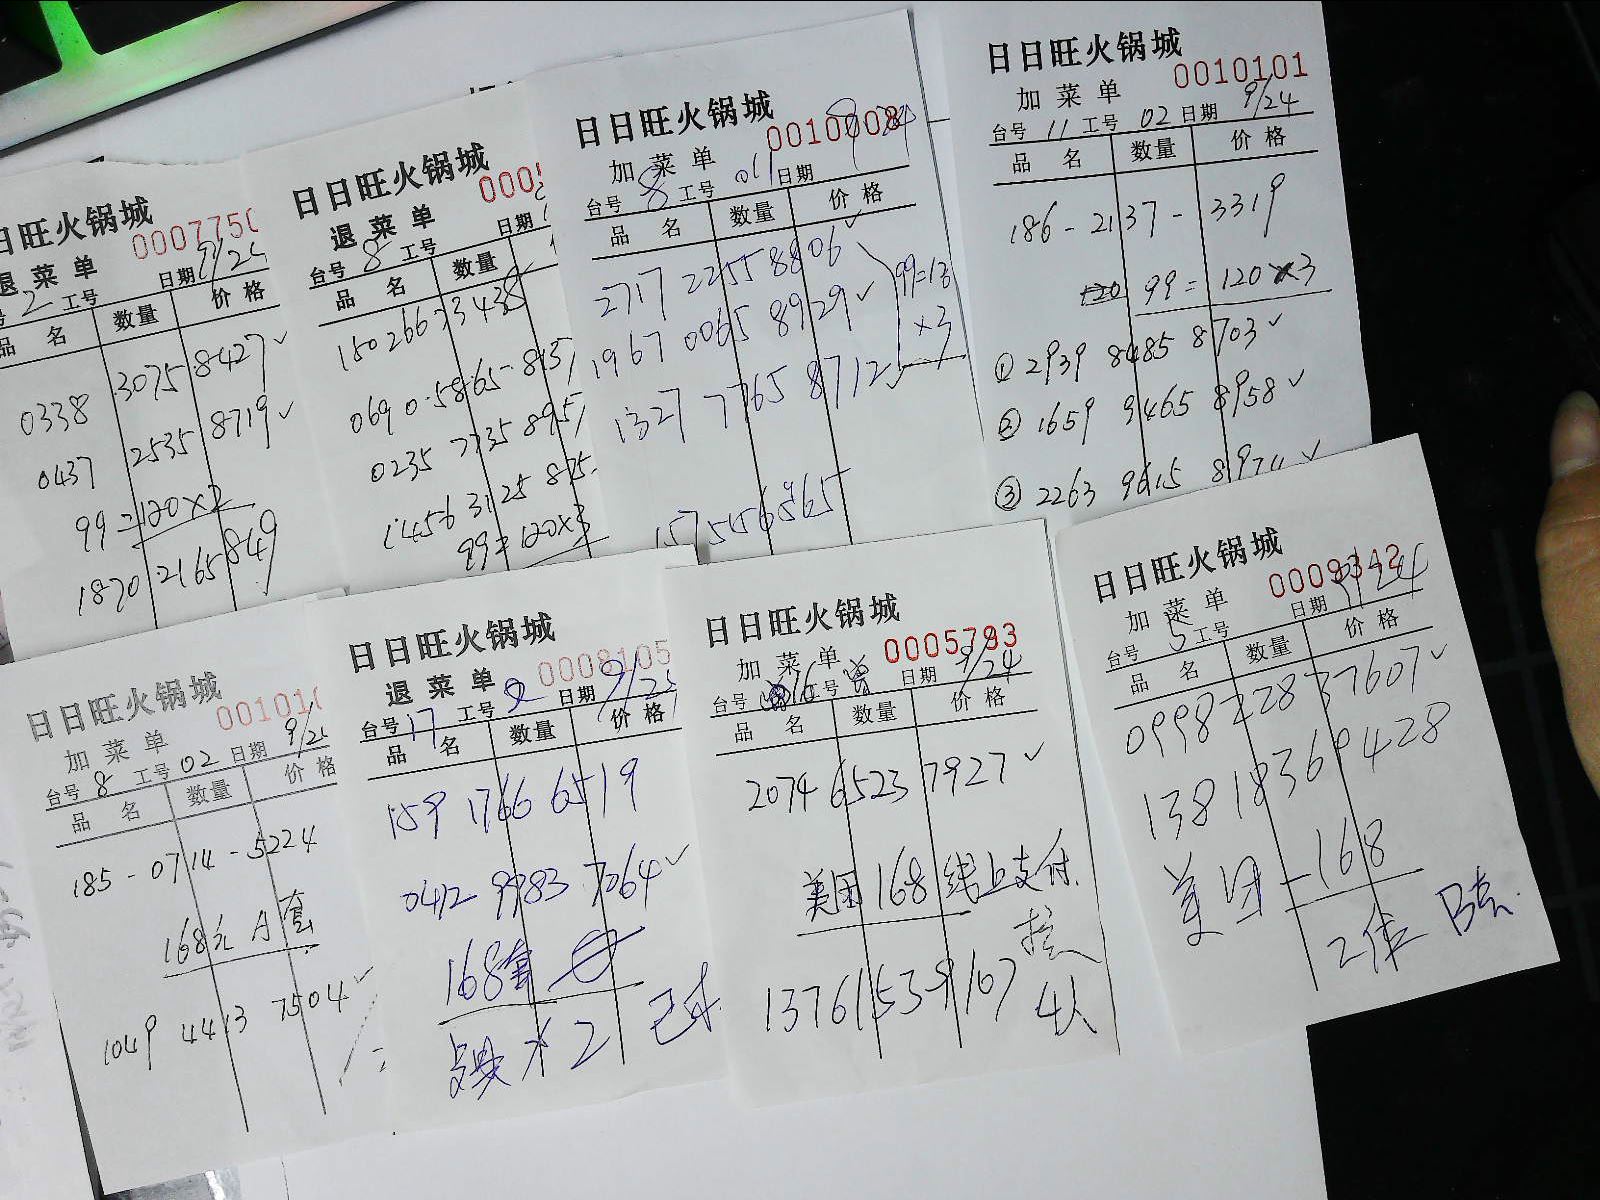 日旺火锅城
0007750
退菜单
2 工号 日期 9/25
品 名 数量 价格
0338 3075 8427 ✓
0437 2535 8719 ✓
99=120×2
1870 2165 849
日日旺火锅城
退菜单
台号 8 工号 日期
品 名 数量
150 2667 3438
0690-5865-8157
0235 7735 8957
1456 3125 875
99=120×3
日日旺火锅城
0010008
加菜单
台号 8 工号 011 日期
品 名 数量 价格
2717 2255 8806 ✓
1967 0065 8929 ✓
1327 7765 8712
×3
日日旺火锅城
0010101
加菜单
台号 11 工号 02 日期 9/24
品 名 数量 价格
186-2137-3319
99=120×3
① 2939 8485 8703 ✓
② 1659 9465 8958 ✓
③ 2263 9615 897 ✓
日日旺火锅城
001010
加菜单
台号 8 工号 02 日期 9/2
品 名 数量 价格
185-0714-5224
168元 A套
1049 4413 7504 ✓
日日旺火锅城
0008105
退菜单
台号 17 工号 日期 9/25
品 名 数量 价格
159 1766 6519
0412 9983 7064 ✓
168套
2 已付
日日旺火锅城
0005793
加菜单
台号 16 工号 日期 9/24
品 名 数量 价格
2074 6523 7927 ✓
美团168 线上支付
13761539167
4人
日日旺火锅城
0009342
加菜单
台号 5 工号 日期 9/24
品 名 数量 价格
0998 228 37607 ✓
13818369428
美团-168
2位 B套